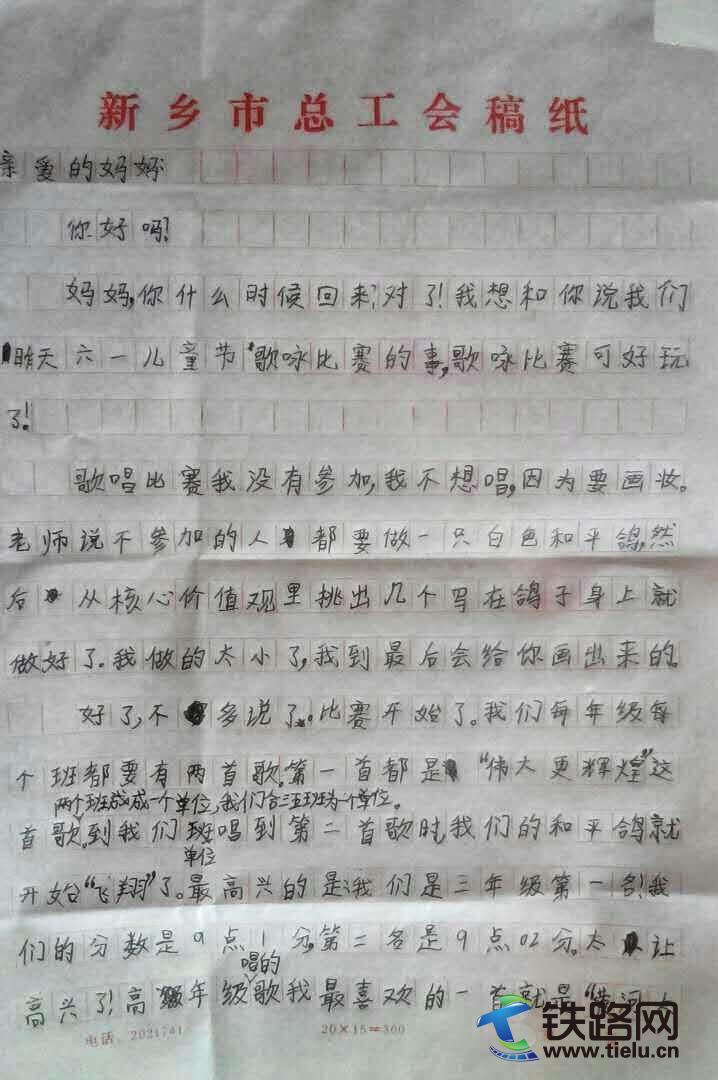 新乡市总工会稿纸
亲爱的妈妈
你好吗?
妈妈,你什么时候回来?对了!我想和你说我们
昨天六一儿童节歌咏比赛的事,歌咏比赛可好玩
了!
歌唱比赛我没有参加,我不想唱,因为要画妆。
老师说不参加的人都要做一只白色和平鸽,然
后从核心价值观里挑出几个写在鸽子身上就
做好了。我做的太小了,我到最后会给你画出来的。
好了,不多说了。比赛开始了。我们每年级每
个班都要有两首歌。第一首都是“伟大更辉煌”这
两个班或成一个单位,我们合三五班为一个单位。
首歌。到我们班唱到第二首歌时,我们的和平鸽就
单位
开始“飞翔”了。最高兴的是:我们是三年级第一名!我
们的分数是9点1分,第二名是9点02分。太让
唱的
高兴了!高年级歌我最喜欢的一首就是“黄河大
电话:2021741
20×15=300
铁路网
www.tielu.cn